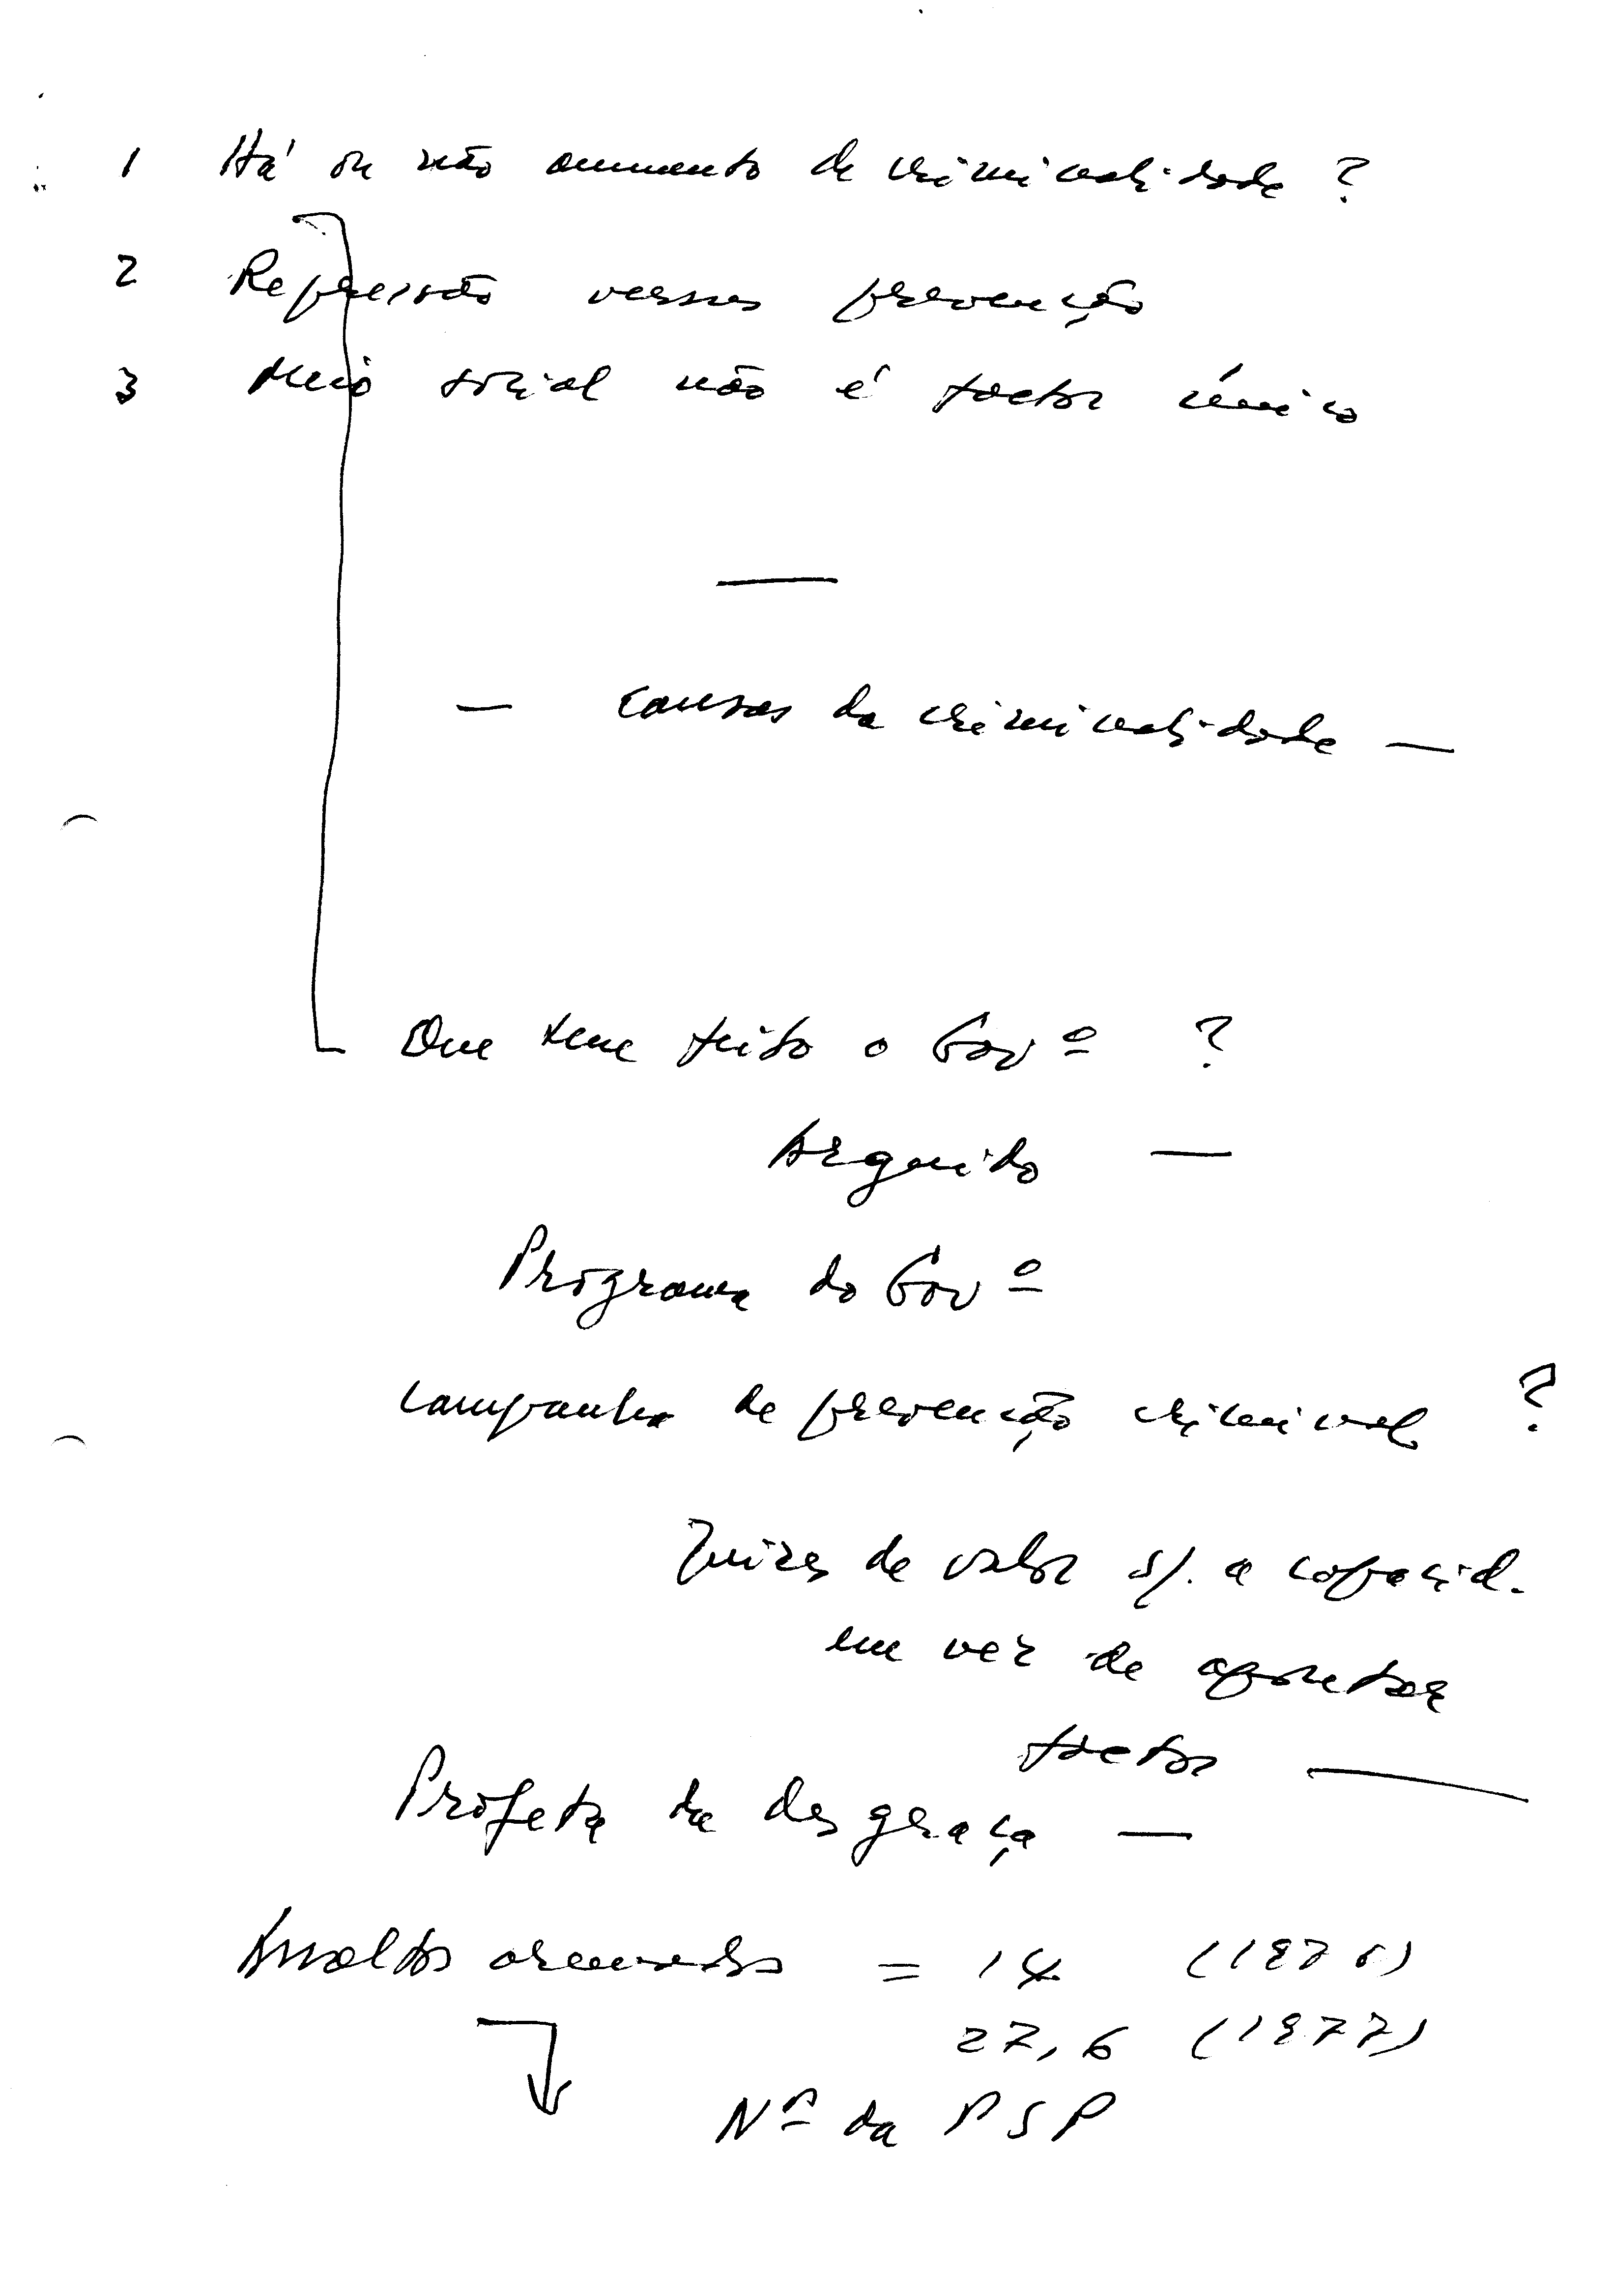 1 Há ou não aumento de criminalidade ?
2 Repressão versus prevenção
3 Meio social não é factor único
—
— Causas da criminalidade —
Que tem feito o Govº ?
Arguido —
Programa do Govº
Campanha de prevenção criminal ?
Juizes de valor s/. a capacid.
em vez de apontar
factos —
Profeta da desgraça —
Assaltos armados = 14 (1976)
27,6 (1977)
Nº da PSP